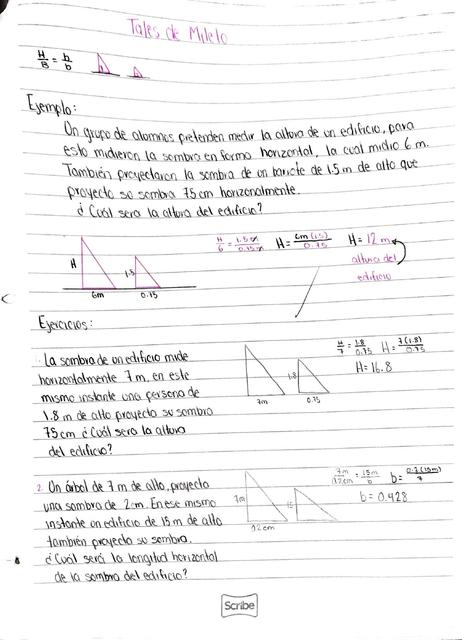 Tales de Mileto
H/B = h/b
Ejemplo:
Un grupo de alumnos pretenden medir la altura de un edificio, para
esto midieron la sombra en forma horizontal, la cual midio 6 m.
También proyectaron la sombra de un barrote de 1.5 m de alto que
proyecto su sombra 75 cm horizonalmente.
¿Cuál sera la altura del edificio?
H/6 = 1.5m/0.75m H= 6m(1.5)/0.75 H= 12 m
altura del
edificio
H 1.5
6m 0.75
Ejercicios:
1. La sombra de un edificio mide
horizontalmente 7 m, en este
mismo instante una persona de
1.8 m de alto proyecto su sombra
75 cm ¿Cuál sera la altura
del edificio?
1.8
7m 0.75
H/7 = 1.8/0.75 H= 7(1.8)/0.75
H= 16.8
2. Un árbol de 7 m de alto, proyecta
una sombra de 2cm. En ese mismo
instante un edificio de 15 m de alto
también proyecta su sombra.
¿Cuál será la longitud horizontal
de la sombra del edificio?
7m 15
b= 0.428
Scribe